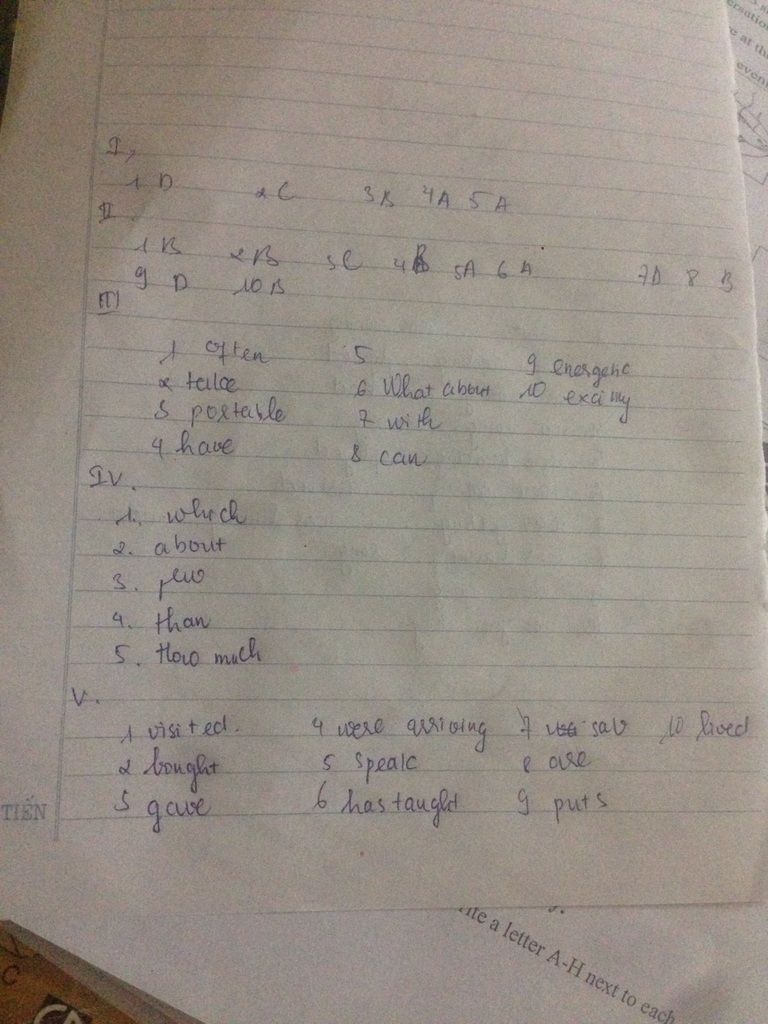 I,
1 D 2 C 3 B 4 A 5 A
II
1 B 2 B 3 C 4 B 5A 6 A 7D 8 B
9 D 10 B
III
1 often 5 9 energenc
2 talke 6 What about 10 exciny
3 portable 7 with
4 have 8 can
IV.
1. which
2. about
3.
4. than
5. How much
V.
1 visited. 4 were arriving 7 sav 10 lived
2 bought 5 speak 8 are
3 gave 6 has taught 9 puts
TIẾN
ite a letter A-H next to each
ersation
e at the
event